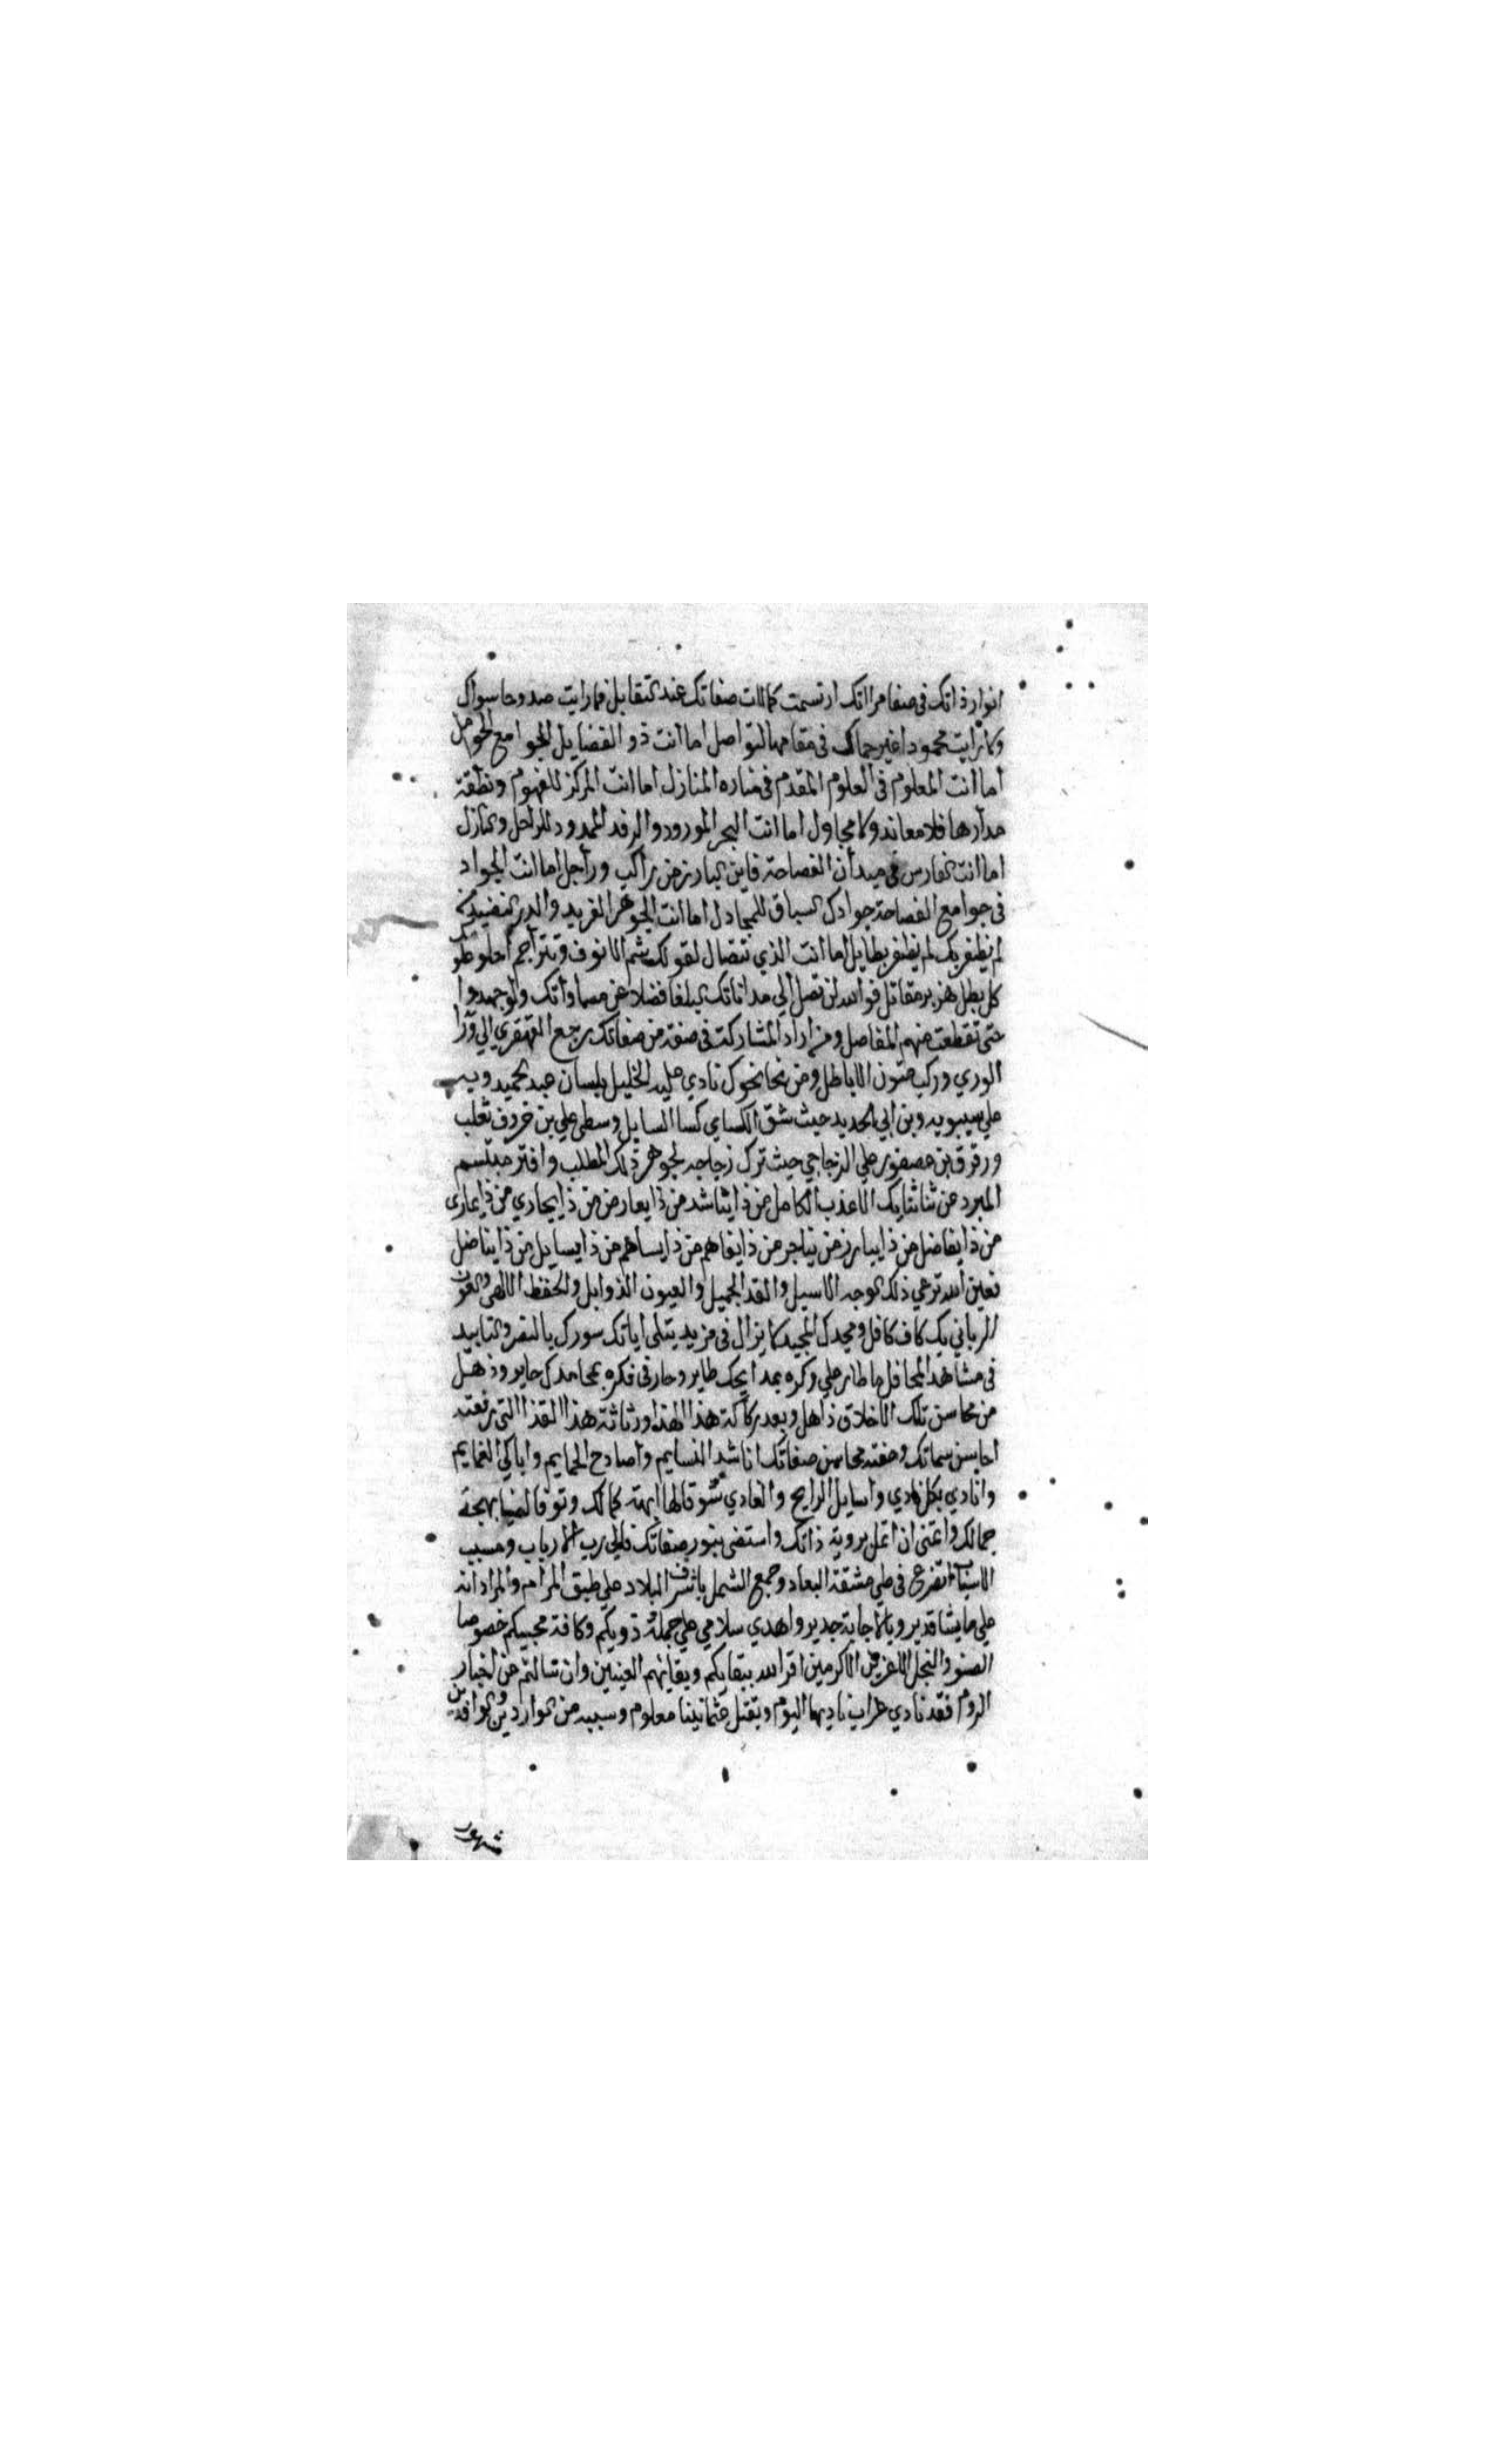 انوار ذاتك في صفا مراتك ارتسمت كمالات صفاتك عند التقابل فما رايت صدوحا سواك
ولا رايت محمودا غير جمالك في مقام التواصل اما انت ذو الفضايل الجوامع
اما انت المعلوم في العلوم المقدم في مناره المنازل اما انت المركز للفهوم ونطقة
مدارها فلا معاند ولا مجاول اما انت البحر المورود والرفد الممدود للراحل والنازل
اما انت الفارس في ميدان الفصاحة فاين المبارز من راكب وراجل اما انت الجواد
في جوامع الفصاحة جوادك السباق للمجادل اما انت الجوهر الفريد والدر النضيد
لم يظفر بك لم يظفر بطايل اما انت الذي تتصال لقولك شم الانوف وتتراجم
كل بطل هزبر مقاتل فوالله لن تصل الي مداناتك البلغا فضلا عن مساواتك ولو جهدوا
حتى تقطعت منهم المفاصل ومن اراد المشاركة في صفة من صفاتك رجع القهقري الي ورا
الوري وركب متون الاباطل ومن نحا نحوك نادي عليه الخليل بلسان عبد الحميد
علي سيبويه وبن ابي الحديد حيث شق الكساي كسا السايل وسطى علي بن خروف ثعلب
ورقرق بن عصفور علي الزجاجي حيث ترك زجاجه لجوهر ذلك المطلب وافتر مبتسم
المبرد عن ثنا ثنايك الاعذب الكامل من ذا يناشد من ذا يعارض من ذا يجادي من ذا
من ذا يفاضل من ذا يبارز من يناجر من ذا يفاهم من ذا يساهم من ذا يسايل من ذا يناضل
فعين الله ترعي ذلك الوجه الاسيل والقد الجميل والعيون الذوابل والحفظ الالهي والعون
الرباني بك كاف كافل ومجدك المجيد لا يزال في مزيد يتلى اياتك سورك بالنصر والتاييد
في مشاهد المحافل ما طار علي وكره بمدايحك طاير وحار في فكره بمحامدك حاير وذهل
من محاسن تلك الاخلاق ذاهل وبعد ركاكة هذا الهذا ورثاثة هذا القذا التي رفعته
احاسن سماتك وصفته محاسن صفاتك اناشد النسايم واصادح الحمايم واباكي الغمايم
وانادي بكل نادي واسايل الرايح والغادي شوقا لها ابهة كمالك وتوقا لضيا بهجة
جمالك واتمنى ان اتمل بروية ذاتك واستضى بنور صفاتك فالي رب الارباب ومسبب
الاسباب اتضرع في طي مشقة البعاد وجمع الشمل باشرف البلاد علي طبق المرام والمراد انه
علي ما يشا قدير وبالاجابة جدير واهدي سلامي علي جملة ذويكم وكافة محبيكم خصوصا
الصنو والنجل الاعزين الاكرمين اقر الله ببقايكم وبقايهم العينين وان سالتم عن اخبار
الروم فقد نادي خراب ناديها اليوم وبقتل عثماننا معلوم وسببه من الواردين والوافدين
مشهور